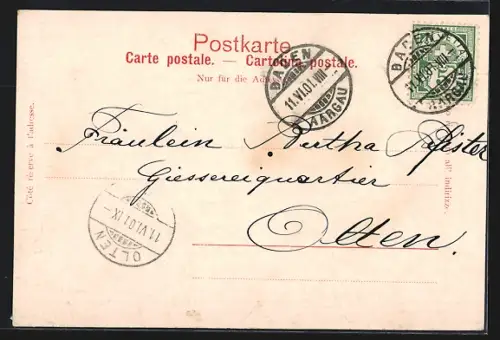 Postkarte.
Carte postale. — Cartolina postale.
Nur für die Adresse.
BADEN
11.VI.01.VIII
AARGAU
BADEN
11.VI.01.VIII
AARGAU
Côté réservé à l'adresse.
Fräulein Bertha Pfister
Giessereiquartier
Olten.
OLTEN
11.VI.01.IX-
all' indirizzo.